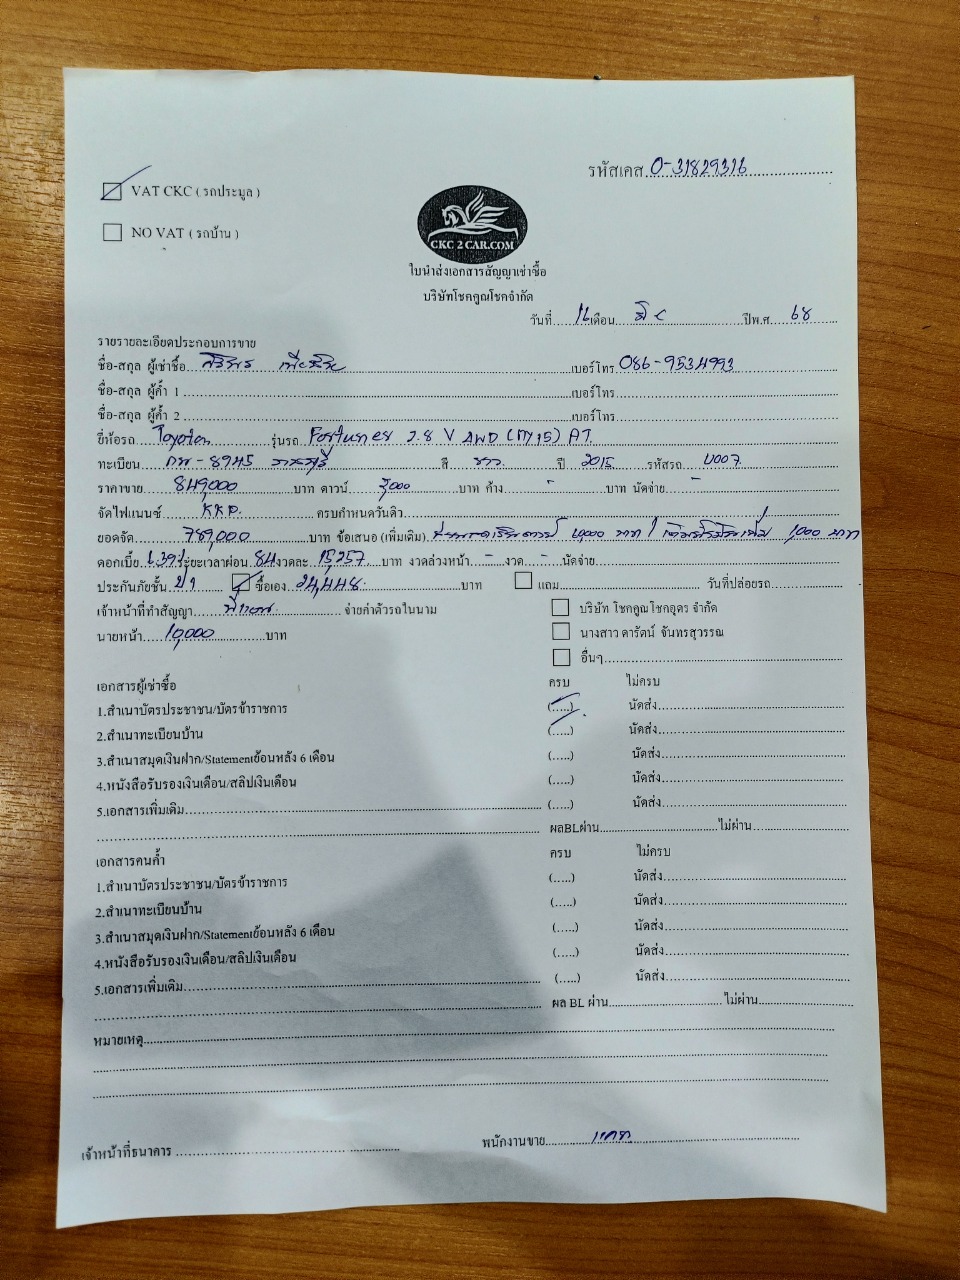 รหัสเคส 0-31829316
VAT CKC ( รถประมูล )
NO VAT ( รถบ้าน )
CKC 2 CAR.COM
ใบนำส่งเอกสารสัญญาเช่าซื้อ
บริษัทโชคคูณโชคจำกัด
วันที่ 16 เดือน มิ.ย ปีพ.ศ 68
รายรายละเอียดประกอบการขาย
ชื่อ-สกุล ผู้เช่าซื้อ ศิริพร เบอร์โทร 086-9534993
ชื่อ-สกุล ผู้ค้ำ 1 เบอร์โทร
ชื่อ-สกุล ผู้ค้ำ 2 เบอร์โทร
ยี่ห้อรถ Toyota รุ่นรถ Fortuner 2.8 V 4WD (MY15) AT
ทะเบียน กพ-8945 ราชบุรี สี ขาว ปี 2015 รหัสรถ U007
ราคาขาย 849,000 บาท ดาวน์ บาท ค้าง - บาท นัดจ่าย -
จัดไฟแนนซ์ KKP. ครบกำหนดวันคิว
ยอดจัด 789,000 บาท ข้อเสนอ (เพิ่มเติม) บาท / 1,000 บาท
ดอกเบี้ย 6.39% ระยะเวลาผ่อน 84 งวดละ 15,257 บาท งวดล่วงหน้า - งวด - นัดจ่าย
ประกันภัยชั้น ป1 ซื้อเอง 24,448 บาท แถม วันที่ปล่อยรถ
เจ้าหน้าที่ทำสัญญา จ่ายค่าตัวรถในนาม บริษัท โชคคูณโชคอุดร จำกัด
นายหน้า 10,000 บาท นางสาว ดารัตน์ จันทรสุวรรณ
อื่นๆ
เอกสารผู้เช่าซื้อ ครบ ไม่ครบ
1.สำเนาบัตรประชาชน/บัตรข้าราชการ (.....) นัดส่ง
2.สำเนาทะเบียนบ้าน (.....) นัดส่ง
3.สำเนาสมุดเงินฝาก/Statementย้อนหลัง 6 เดือน (.....) นัดส่ง
4.หนังสือรับรองเงินเดือน/สลิปเงินเดือน (.....) นัดส่ง
5.เอกสารเพิ่มเติม (.....) นัดส่ง
ผลBLผ่าน ไม่ผ่าน
เอกสารคนค้ำ ครบ ไม่ครบ
1.สำเนาบัตรประชาชน/บัตรข้าราชการ (.....) นัดส่ง
2.สำเนาทะเบียนบ้าน (.....) นัดส่ง
3.สำเนาสมุดเงินฝาก/Statementย้อนหลัง 6 เดือน (.....) นัดส่ง
4.หนังสือรับรองเงินเดือน/สลิปเงินเดือน (.....) นัดส่ง
5.เอกสารเพิ่มเติม (.....) นัดส่ง
ผล BL ผ่าน ไม่ผ่าน
หมายเหตุ
เจ้าหน้าที่ธนาคาร พนักงานขาย